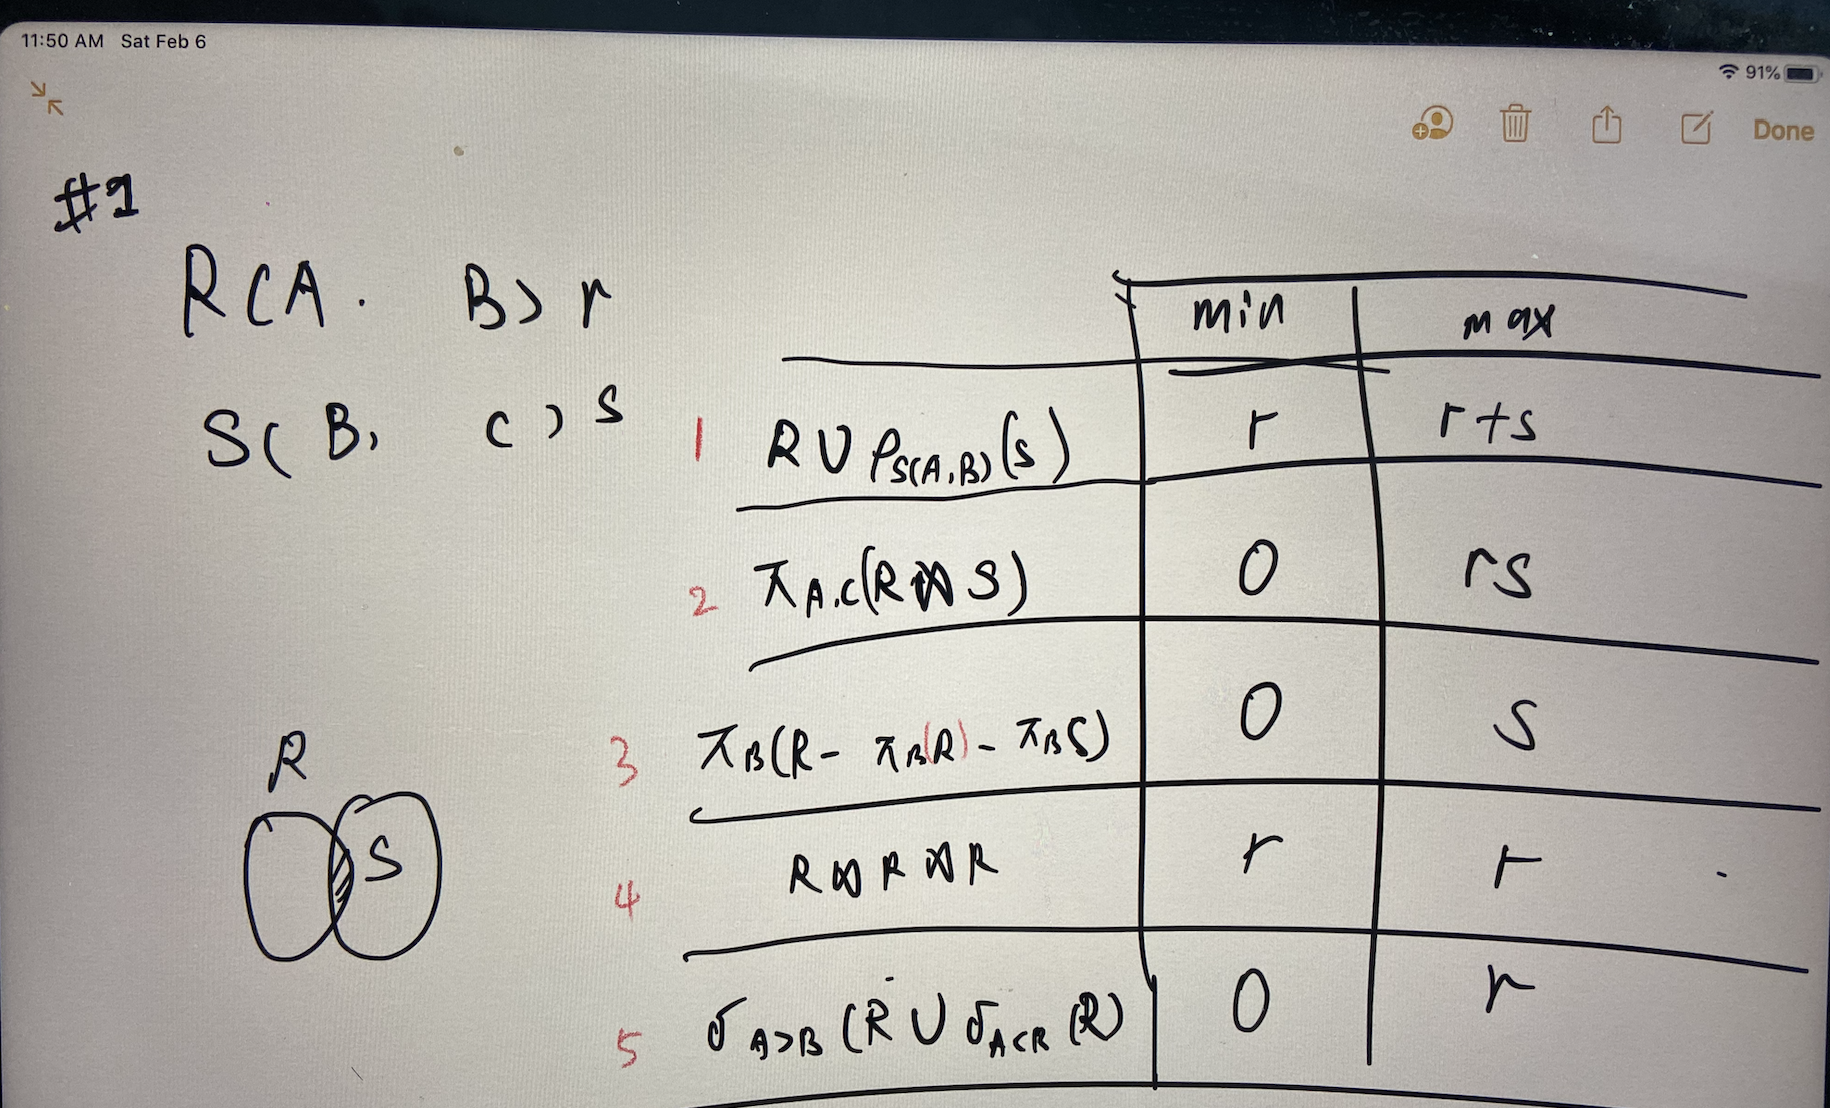 11:50 AM Sat Feb 6
91%
Done
#1
R(A. B) r
S( B, C ) s
min max
1 R ∪ ρS(A,B)(S) r r+s
2 πA,C(R ⋈ S) 0 rs
3 πB(R - πB(R) - πBS) 0 S
4 R ⋈ R ⋈ R r r
5 σA>B (R ∪ σA<R (R) 0 r
R
S